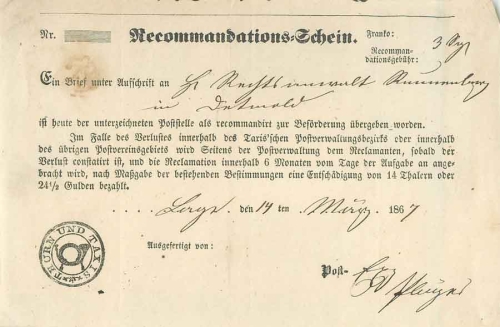 Nr. Recommandations-Schein. Franko: 3 Sgr
Recomman-
dationsgebühr:
Ein Brief unter Aufschrift an H. Rechtsanwalt
in Detmold
ist heute der unterzeichneten Poststelle als recommandirt zur Beförderung übergeben worden.
Im Falle des Verlustes innerhalb des Taris'schen Postverwaltungsbezirks oder innerhalb
des übrigen Postvereinsgebiets wird Seitens der Postverwaltung dem Reclamanten, sobald der
Verlust constatirt ist, und die Reclamation innerhalb 6 Monaten vom Tage der Aufgabe an ange-
bracht wird, nach Maßgabe der bestehenden Bestimmungen eine Entschädigung von 14 Thalern oder
24½ Gulden bezahlt.
Lage, den 14 ten März 1867
Ausgefertigt von:
THURN UND TAXIS
Post-